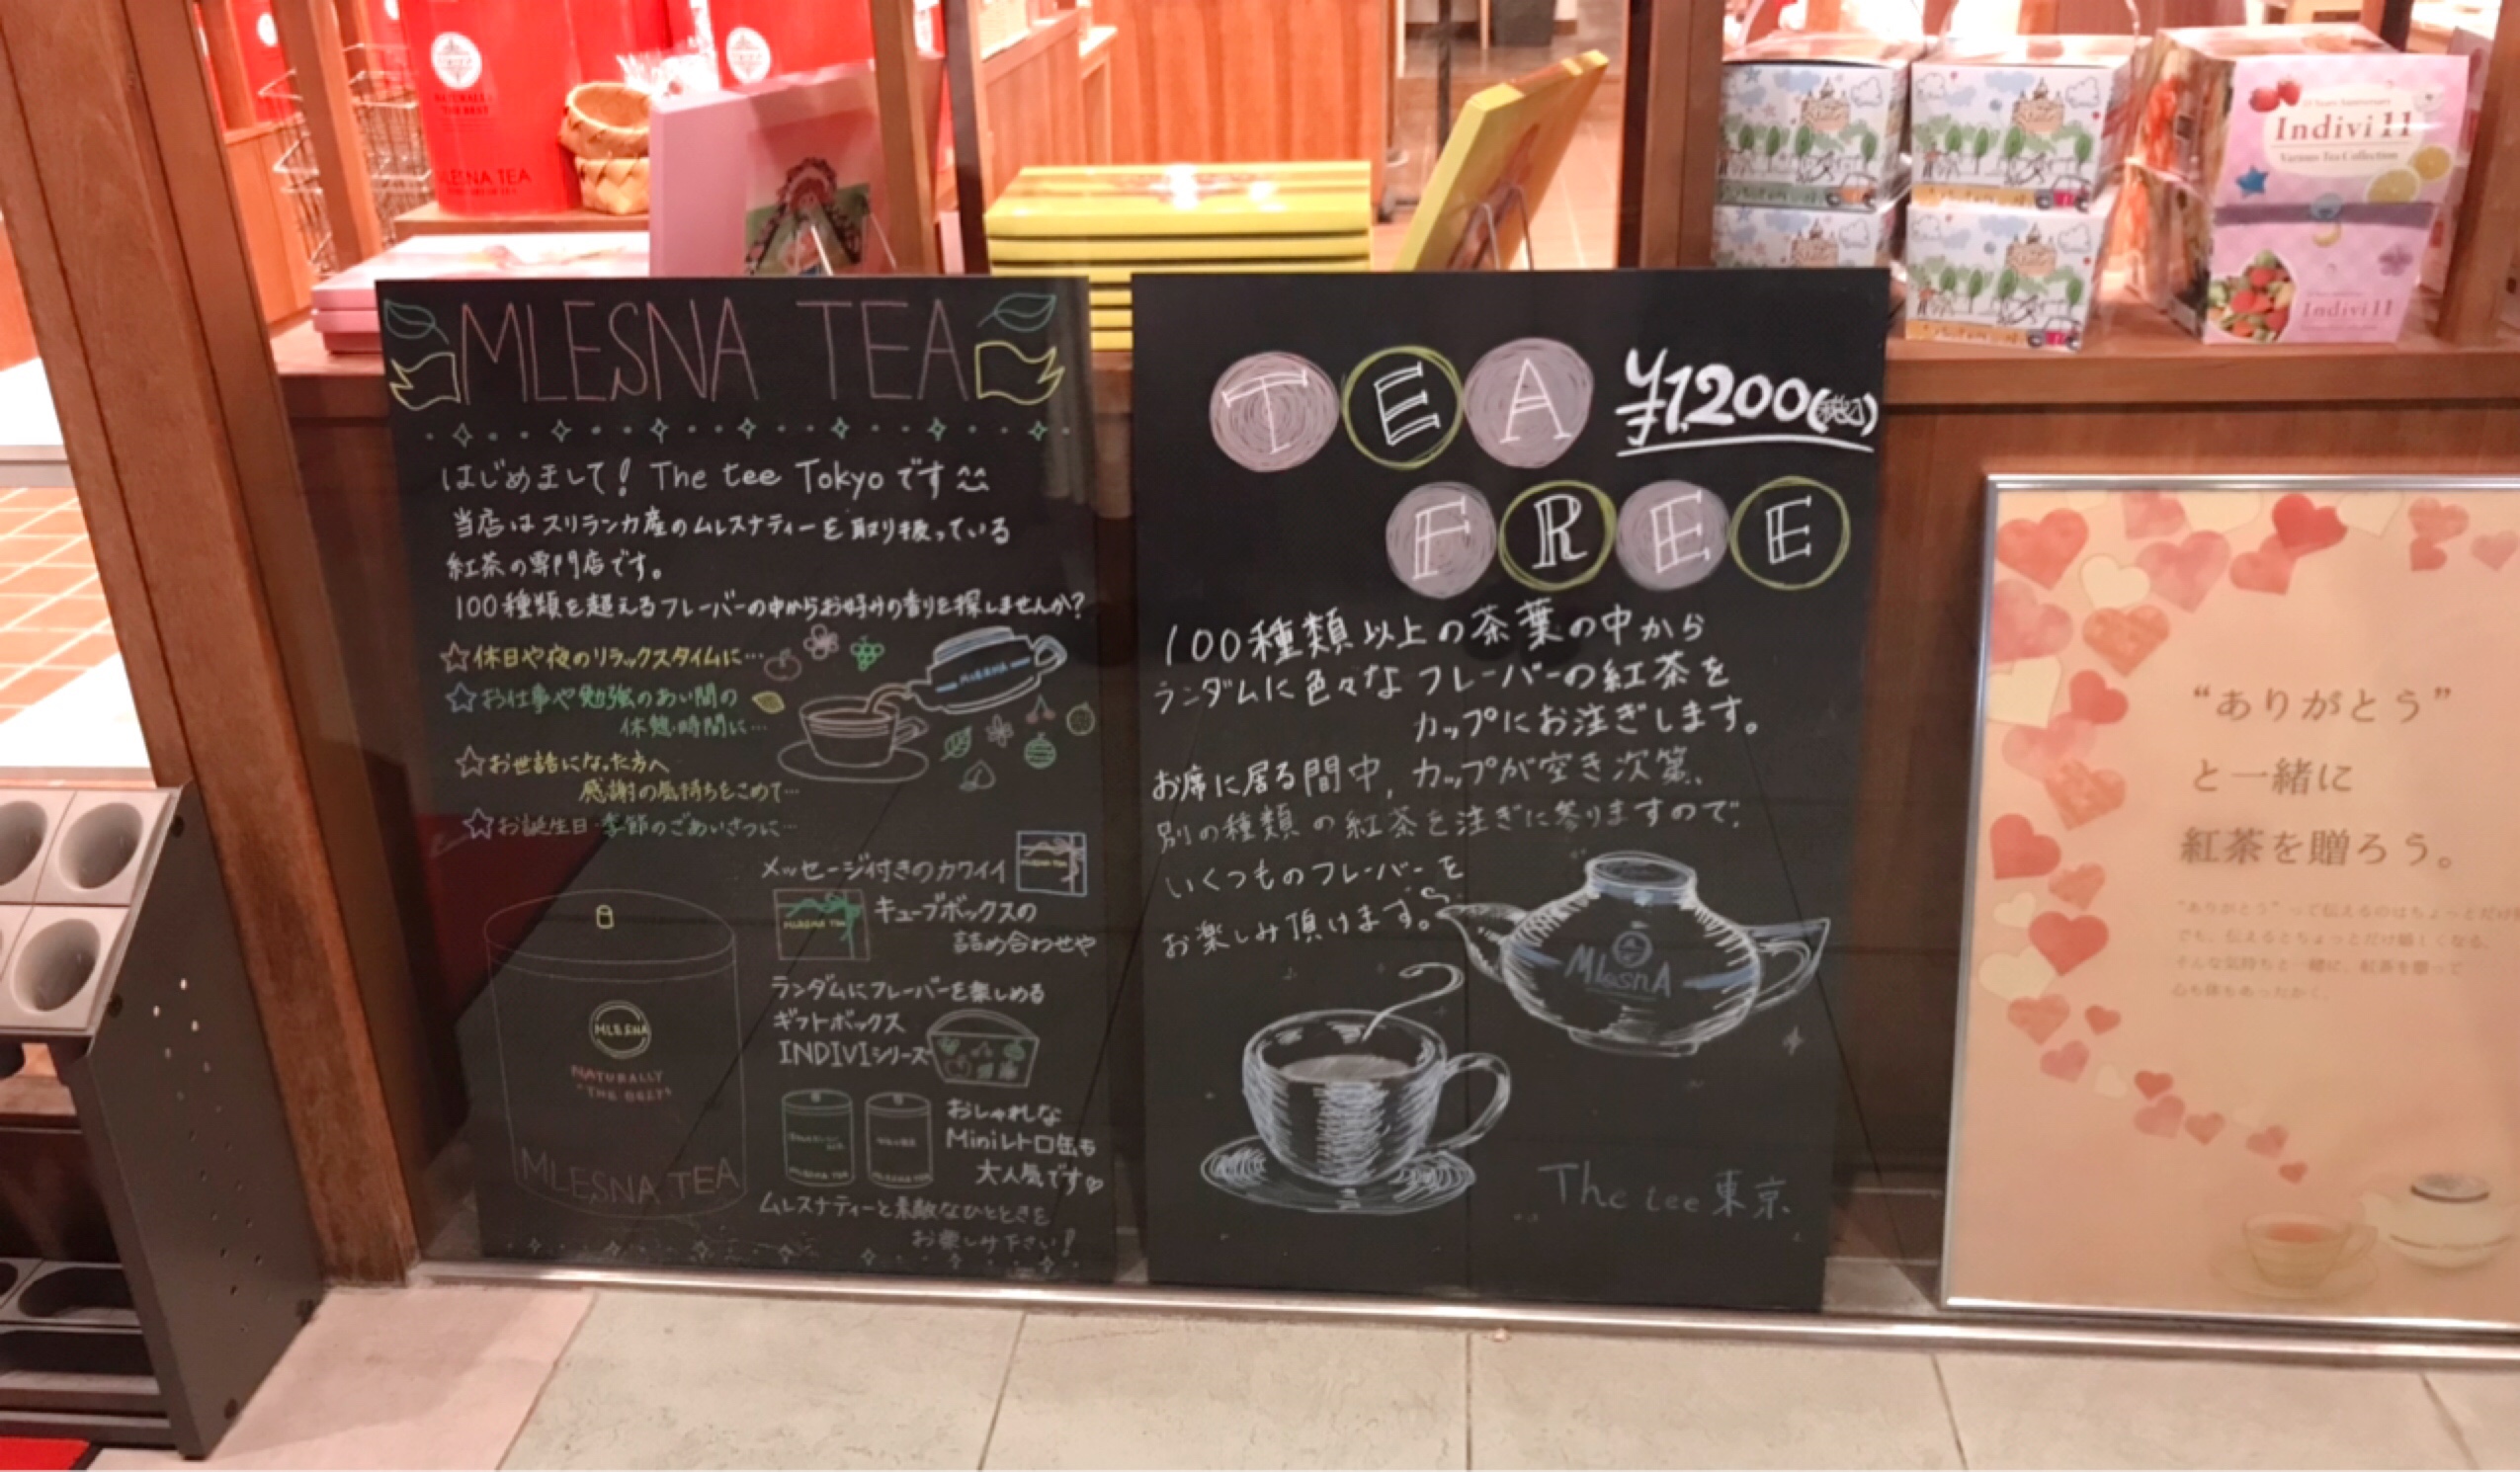 MLESNA TEA
MLESNA TEA
はじめまして! The tee Tokyoです
当店はスリランカ産のムレスナティーを取り扱っている
紅茶の専門店です。
100種類を超えるフレーバーの中からお好みの香りを探しませんか?
☆休日や夜のリラックスタイムに…
☆お仕事や勉強のあい間の
休憩時間に…
☆お世話になった方へ
感謝の気持ちをこめて…
☆お誕生日・季節のごあいさつに…
MLESNA
メッセージ付きのカワイイ
キューブボックスの
詰め合わせや
MLESNA TEA
ランダムにフレーバーを楽しめる
ギフトボックス
INDIVIシリーズ
おしゃれな
Miniレトロ缶も
大人気です♡
MLESNA TEA
MLESNA TEA
ムレスナティーと素敵なひとときを
お楽しみ下さい!
MLESNA
NATURALLY
"THE BEST"
MLESNA TEA
TEA ¥1,200(税込)
FREE
100種類以上の茶葉の中から
ランダムに色々なフレーバーの紅茶を
カップにお注ぎします。
お席に居る間中,カップが空き次第、
別の種類の紅茶を注ぎに参りますので、
いくつものフレーバーを
お楽しみ頂けます。
MLesnA
The tee 東京
Indivi 11
Various Tea Collection
Indivi 11
“ありがとう”
と一緒に
紅茶を贈ろう。
“ありがとう”って伝えるのはちょっとだけ
でも、伝えるとちょっとだけ嬉しくなる。
そんな気持ちと一緒に、紅茶を贈って
心も体もあったかく。